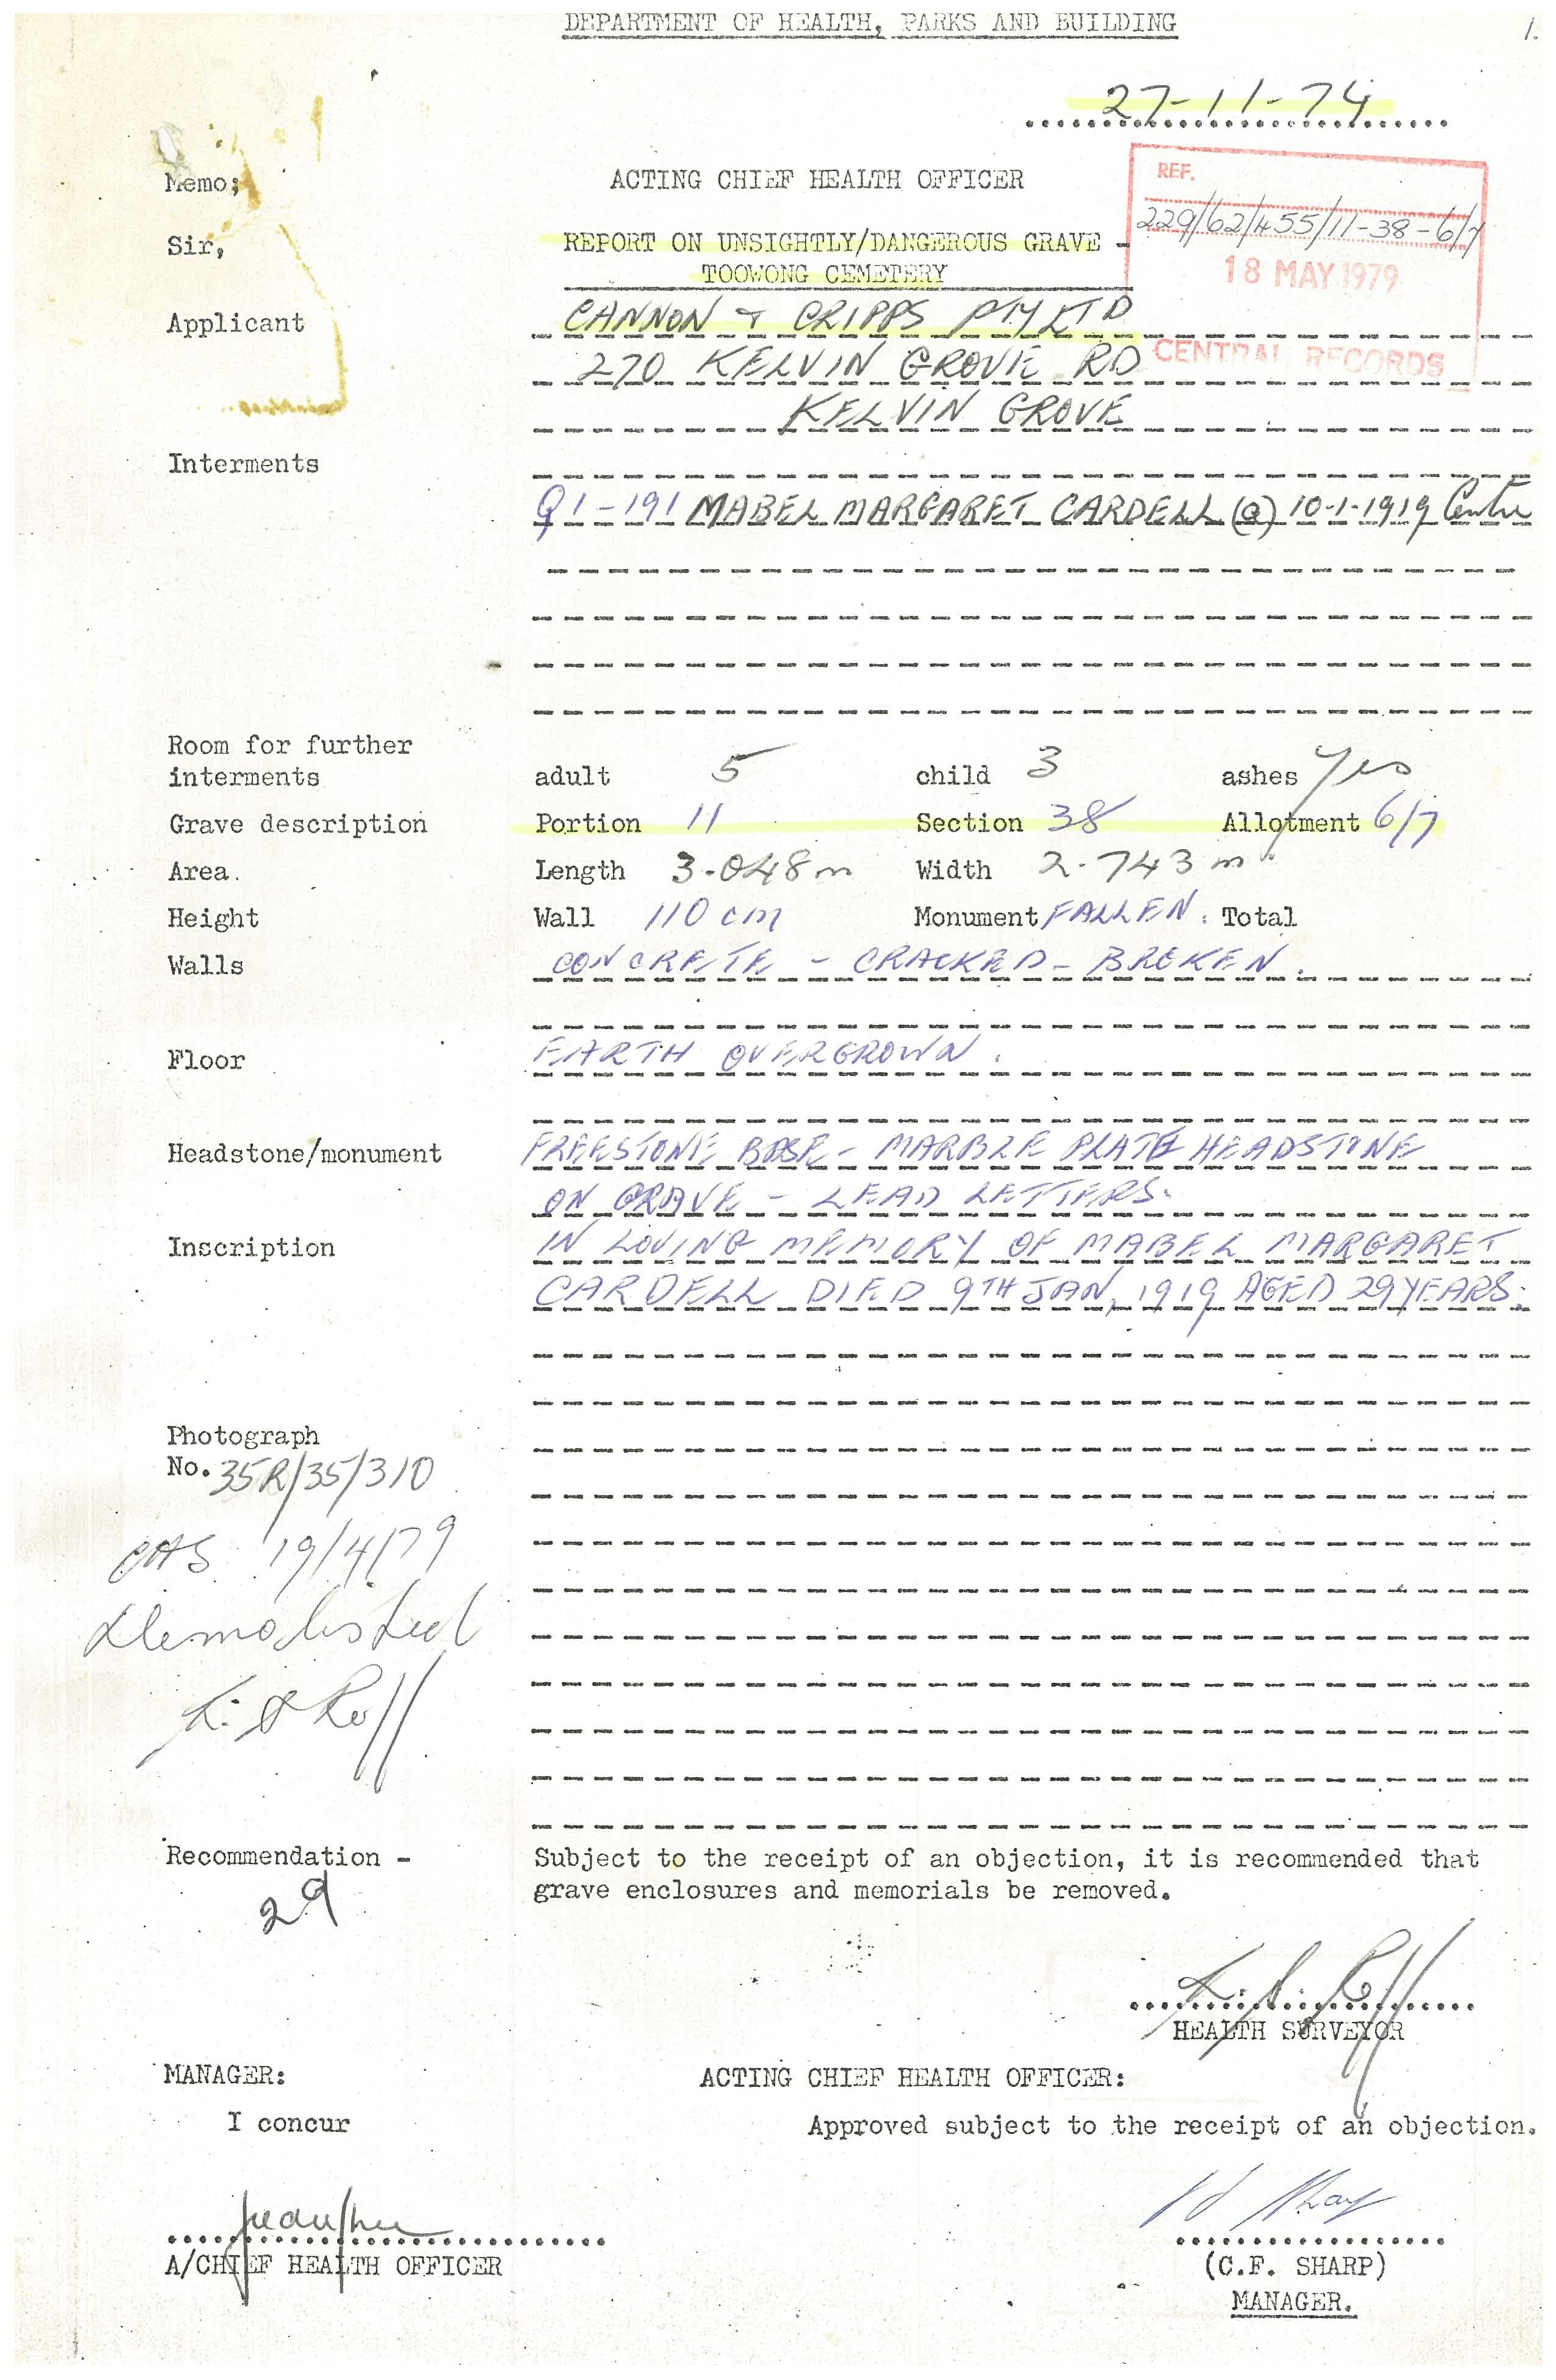 DEPARTMENT OF HEALTH, PARKS AND BUILDING
1.
27-11-74
Memo; ACTING CHIEF HEALTH OFFICER
REF.
229/62/455/11-38-6/7
18 MAY 1979
CENTRAL RECORDS
Sir, REPORT ON UNSIGHTLY/DANGEROUS GRAVE -
TOOWONG CEMETERY
Applicant CANNON & CRIPPS PTY LTD
270 KELVIN GROVE RD
KELVIN GROVE
Interments
Q1-191 MABEL MARGARET CARDELL (a) 10-1-1919 Centre
Room for further
interments adult 5 child 3 ashes Yes
Grave description Portion 11 Section 38 Allotment 6/7
Area. Length 3.048m Width 2.743m
Height Wall 110 cm Monument FALLEN. Total
Walls CONCRETE - CRACKED - BROKEN.
Floor EARTH OVERGROWN.
Headstone/monument FREESTONE BASE - MARBLE PLATE HEADSTONE
ON GRAVE - LEAD LETTERS.
Inscription IN LOVING MEMORY OF MABEL MARGARET
CARDELL DIED 9TH JAN, 1919 AGED 29 YEARS.
Photograph
No. 35R/35/310
19/4/79
Demolished
Recommendation - Subject to the receipt of an objection, it is recommended that
grave enclosures and memorials be removed.
29
HEALTH SURVEYOR
MANAGER: ACTING CHIEF HEALTH OFFICER:
I concur Approved subject to the receipt of an objection.
A/CHIEF HEALTH OFFICER (C.F. SHARP)
MANAGER.